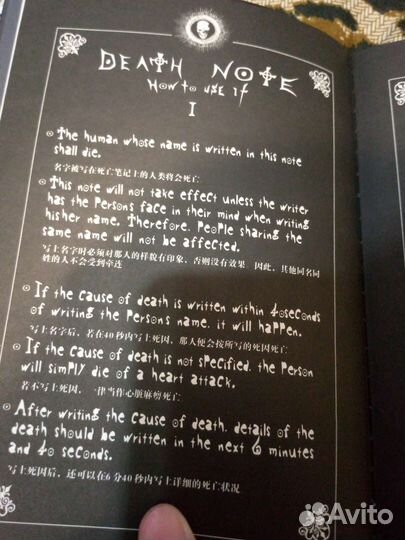 DEATH NOTE
How to use it
I
The human whose name is written in this note
shall die.
名字被写在死亡笔记上的人类将会死亡
This note will not take effect unless the writer
has the Persons face in their mind when writing
hisher name, Therefore, People sharing the
same name will not be affected.
写上名字时必须对那人的样貌有印象，否则没有效果。因此，其他同名同
姓的人不会受到牵连
If the cause of death is written within 40seconds
of writing the Persons name, it will happen.
写上名字后，若在40秒内写上死因，那人便会按所写的死因死亡
If the cause of death is not specified, the Person
will simply die of a heart attack.
若不写上死因，一律当作心脏麻痹死亡
After writing the cause of death, details of the
death should be written in the next 6 minutes
and 40 seconds.
写上死因后，还可以在6分40秒内写上详细的死亡状况
Avito